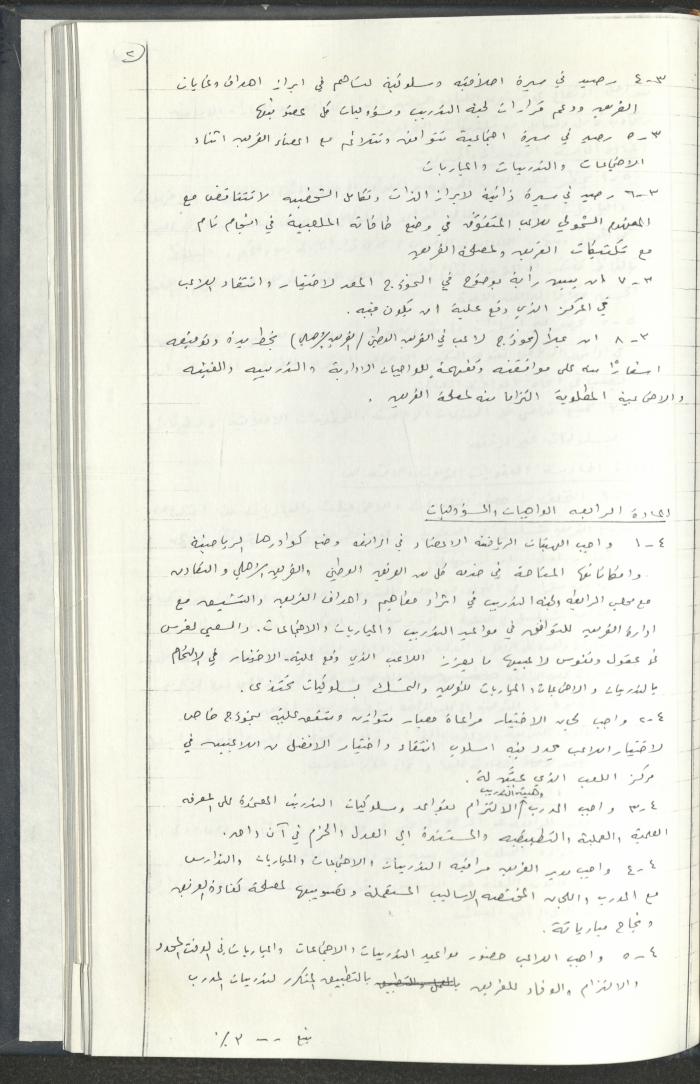 ٢
٣-٤ رصيد في سيرة اخلاقية وسلوكية تساهم في ابراز اهداف وغايات
الفريق ودعم قرارات لجنة التدريب ومسؤوليات كل عضو فيها
٣-٥ رصيد في سيرة اجتماعية تتوافق وتتلائم مع اعضاء الفريق اثناء
الاجتماعات والتدريبات والمباريات
٣-٦ رصيد في سيرة ذاتية لابراز الذات وتكامل الشخصية لا تتناقض مع
المفهوم الشمولي للاعب المتفوق في وضع طاقاته الملعبية في انسجام تام
مع تكتيكات الفريق ولمصلحة الفريق
٣-٧ ان يبين رأية بوضوح في النموذج المعد لاختيار وانتقاء اللاعب
في المركز الذي وقع علية ان يكون فيه.
٣-٨ ان يملأ (نموذج لاعب في الفريق الوطني / الفريق الاهلي) بخط يدة وتوقيعه
اشعارًا منه على موافقته وتفهمة للواجبات الادارية والتدريبيه والفنيه
والاجتماعية المطلوبة التزاما منه لمصلحة الفريق .
المادة الرابعه الواجبات والمسؤوليات
٤-١ واجب الهيئات الرياضية الاعضاء في الرابطه وضع كوادرها الرياضية
وامكاناتها المتاحة في خدمة كل من الفريق الوطني والفريق الاهلي والتعاون
مع مجلس الرابطة ولجنة التدريب في اثراء مفاهيم واهداف الفريق والتنسيق مع
ادارة الفريق للتوافق في مواعيد التدريب والمباريات والاجتماعات. والسعي لغرس
في عقول ونفوس لاعبيها ما يعزز اللاعب الذي وقع علية الاختيار في الالتحام
بالتدريبات والاجتماعات والمباريات للفريق والتمسك بسلوكيات تحتذى.
٤-٢ واجب لجان الاختيار مراعاة معيار متوازن ومتفق علية بنموذج خاص
لاختيار اللاعب يحدد فيه اسلوب انتقاء واختيار الافضل من اللاعبين في
مركز اللعب الذي عيّن لة .
٤-٣ واجب المدرب وهيئة التدريب الالتزام بقواعد وسلوكيات التدريب المعتمدة على المعرفه
العلمية والعملية والتطبيقيه والمستندة الى العدل والحزم في آن واحد.
٤-٤ واجب مدير الفريق مراقبة التدريبات والاجتماعات والمباريات والتدارس
مع المدرب واللجان المختصة الاساليب المستعملة وتصويبها لمصلحة كفاءة الفريق
ونجاح مبارياتة .
٤-٥ واجب اللاعب حضور مواعيد التدريبات والاجتماعات والمباريات في الوقت المحدد
والالتزام والوفاء للفريق بالعمل والتطبيق بالتطبيق المتكرر لتدريبات المدرب
يتبع -- ٣ ./